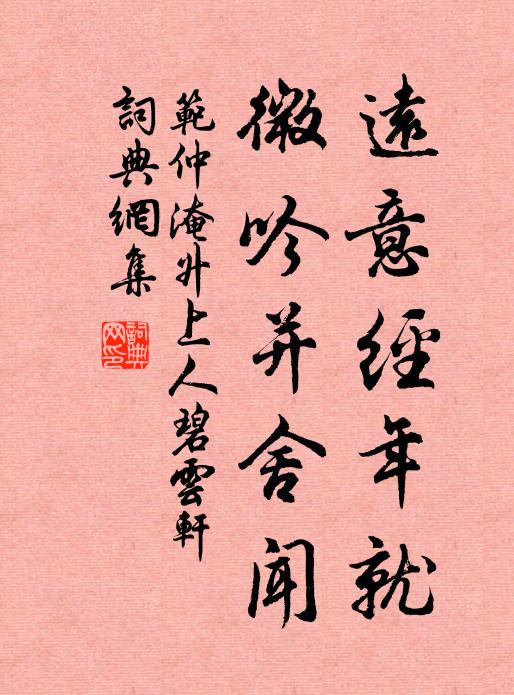 遠意經年就
微吟并舍聞
範仲淹升上人碧雲軒
詞典網集
詞典
网印